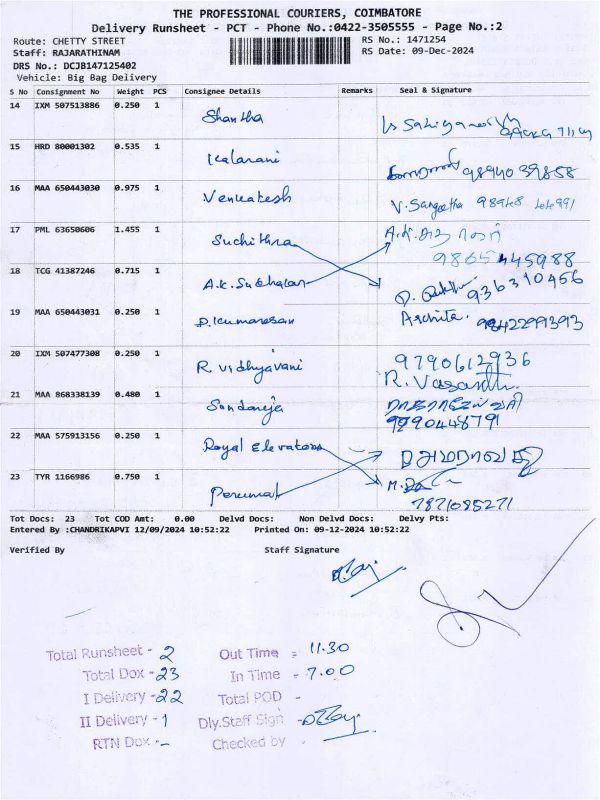 THE PROFESSIONAL COURIERS, COIMBATORE
Delivery Runsheet - PCT - Phone No.:0422-3505555 - Page No.:2
Route: CHETTY STREET RS No.: 1471254
Staff: RAJARATHINAM RS Date: 09-Dec-2024
DRS No.: DCJB147125402
Vehicle: Big Bag Delivery
S No Consignment No Weight PCS Consignee Details Remarks Seal & Signature
14 IXM 507513886 0.250 1 Shantha
15 HRD 80001302 0.535 1 Kalarani 9894039858
16 MAA 650443030 0.975 1 Venkatesh V. Sangeetha
17 PML 63650606 1.455 1 Suchithra
9865445988
18 TCG 41387246 0.715 1 A.K. 936310456
19 MAA 650443031 0.250 1 D. Kumaresan Archita. 9842299393
20 IXM 507477308 0.250 1 R. Vidhyavani 9790612936
R. Vasanth
21 MAA 868338139 0.480 1
9790448791
22 MAA 575913156 0.250 1 Royal Elevators
23 TYR 1166986 0.750 1 Perumal
7871085271
Tot Docs: 23 Tot COD Amt: 0.00 Delvd Docs: Non Delvd Docs: Delvy Pts:
Entered By :CHANDRIKAPVI 12/09/2024 10:52:22 Printed On: 09-12-2024 10:52:22
Verified By Staff Signature
Total Runsheet - 2 Out Time = 11.30
Total Dox - 23 In Time = 7.00
I Delivery - 22 Total POD -
II Delivery - 1 Dly.Staff Sign -
RTN Dox - - Checked by -